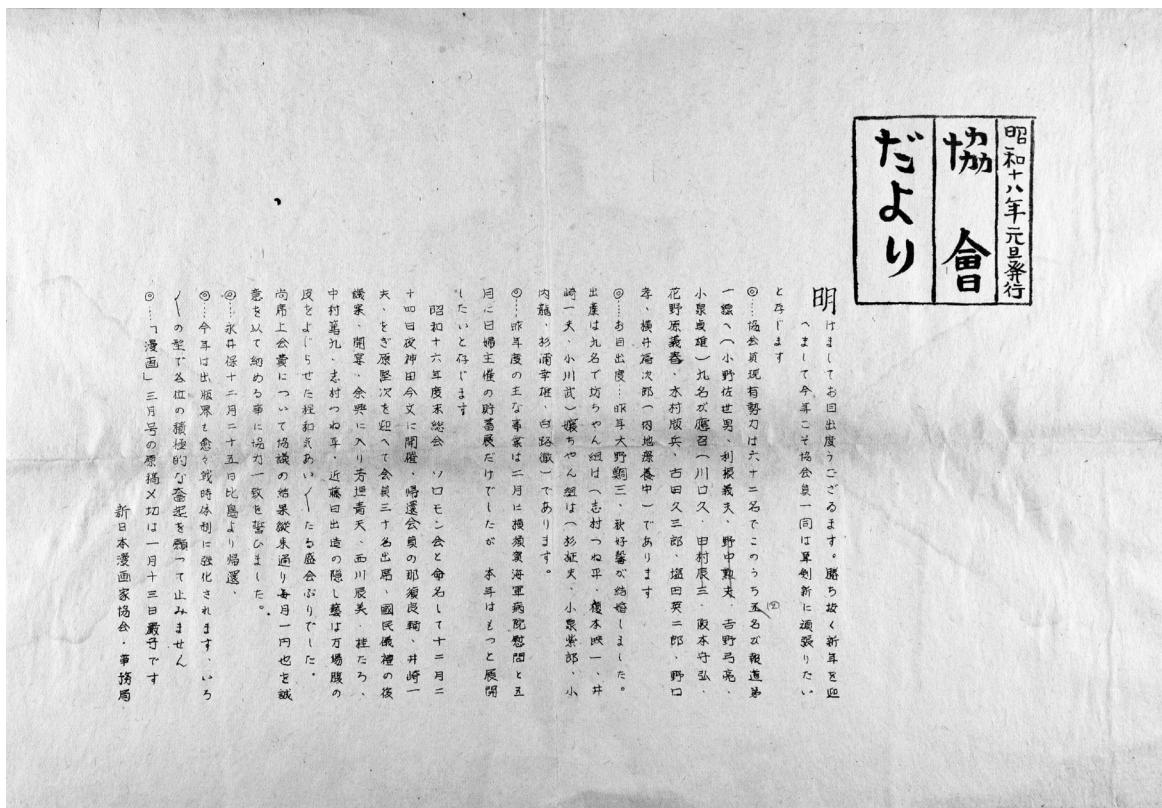 昭和十八年元旦発行
協會
だより
明けましてお目出度うござゐます。勝ち抜く新年を迎
へまして今年こそ協会員一同は真剣に頑張りたい
と存じます
◎…協会員現有勢力は六十二名でこのうち五名が報道第
一線へ(小野佐世男、利根義夫、野中勲夫、吉野弓亮、
小泉貞雄)九名が應召(川口久、田村辰三、阪本守弘、
花野原義春、木村版兵、古田久三郎、塩田英二郎、野口
、横井福次郎(内地療養中)であります
◎…お目出度…昨年大野鯛三、秋好馨が結婚しました。
出産は九名で坊ちやん組は(志村つね平、榎本映一、井
崎一夫、小川武)嬢ちやん組は(杉征夫、小泉紫郎、小
内龍、杉浦幸雄、白路徹)であります。
◎…昨年度の主な事業は二月に横須賀海軍病院慰問と五
月に日婦主催の貯蓄展だけでしたが 本年はもつと展開
したいと存じます
昭和十六年度末総会、ソロモン会と命名して十二月二
十四日夜神田今文に開催、帰還会員の那須良輔、井崎一
夫、をぎ原賢次を迎へて会員三十名出席、國民儀禮の後
議案、開宴、余興に入り芳垣青天、西川辰美、桂たろ、
中村篤九、志村つね平、近藤日出造の隠し藝は万場腹の
皮をよじらせた程和気あい〱たる盛会ぶりでした。
尚席上会費について協議の結果従来通り毎月一円也を誠
意を以て納める事に協力一致を誓ひました。
◎…永井保十二月二十五日比島より帰還、
◎…今年は出版界も愈々戦時体制に強化されます、いろ
〱の型で各位の積極的な奮起を願つて止みません
◎…「漫画」三月号の原稿〆切は一月十三日厳守です
新日本漫画家協会・事務局